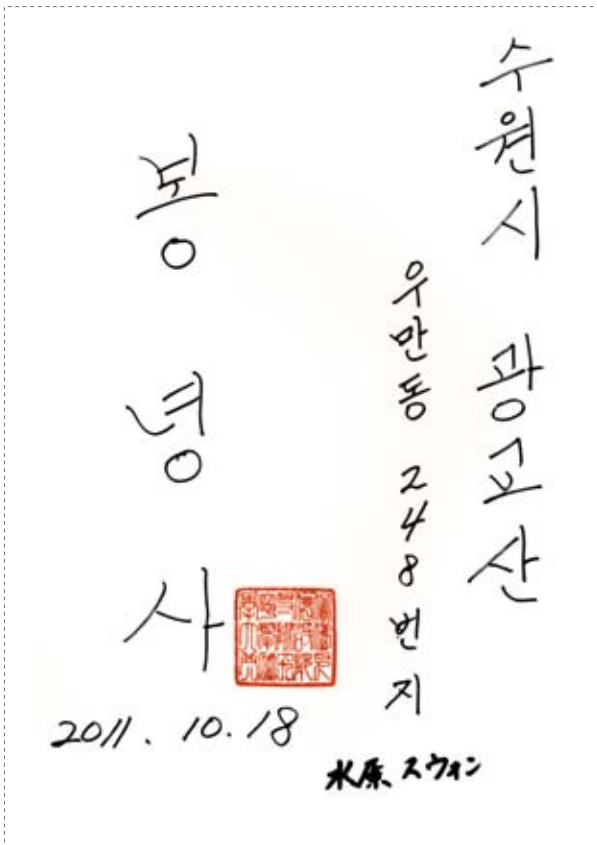 수원시 광교산
우만동 248번지
봉녕사
2011. 10. 18
水原、スウォン